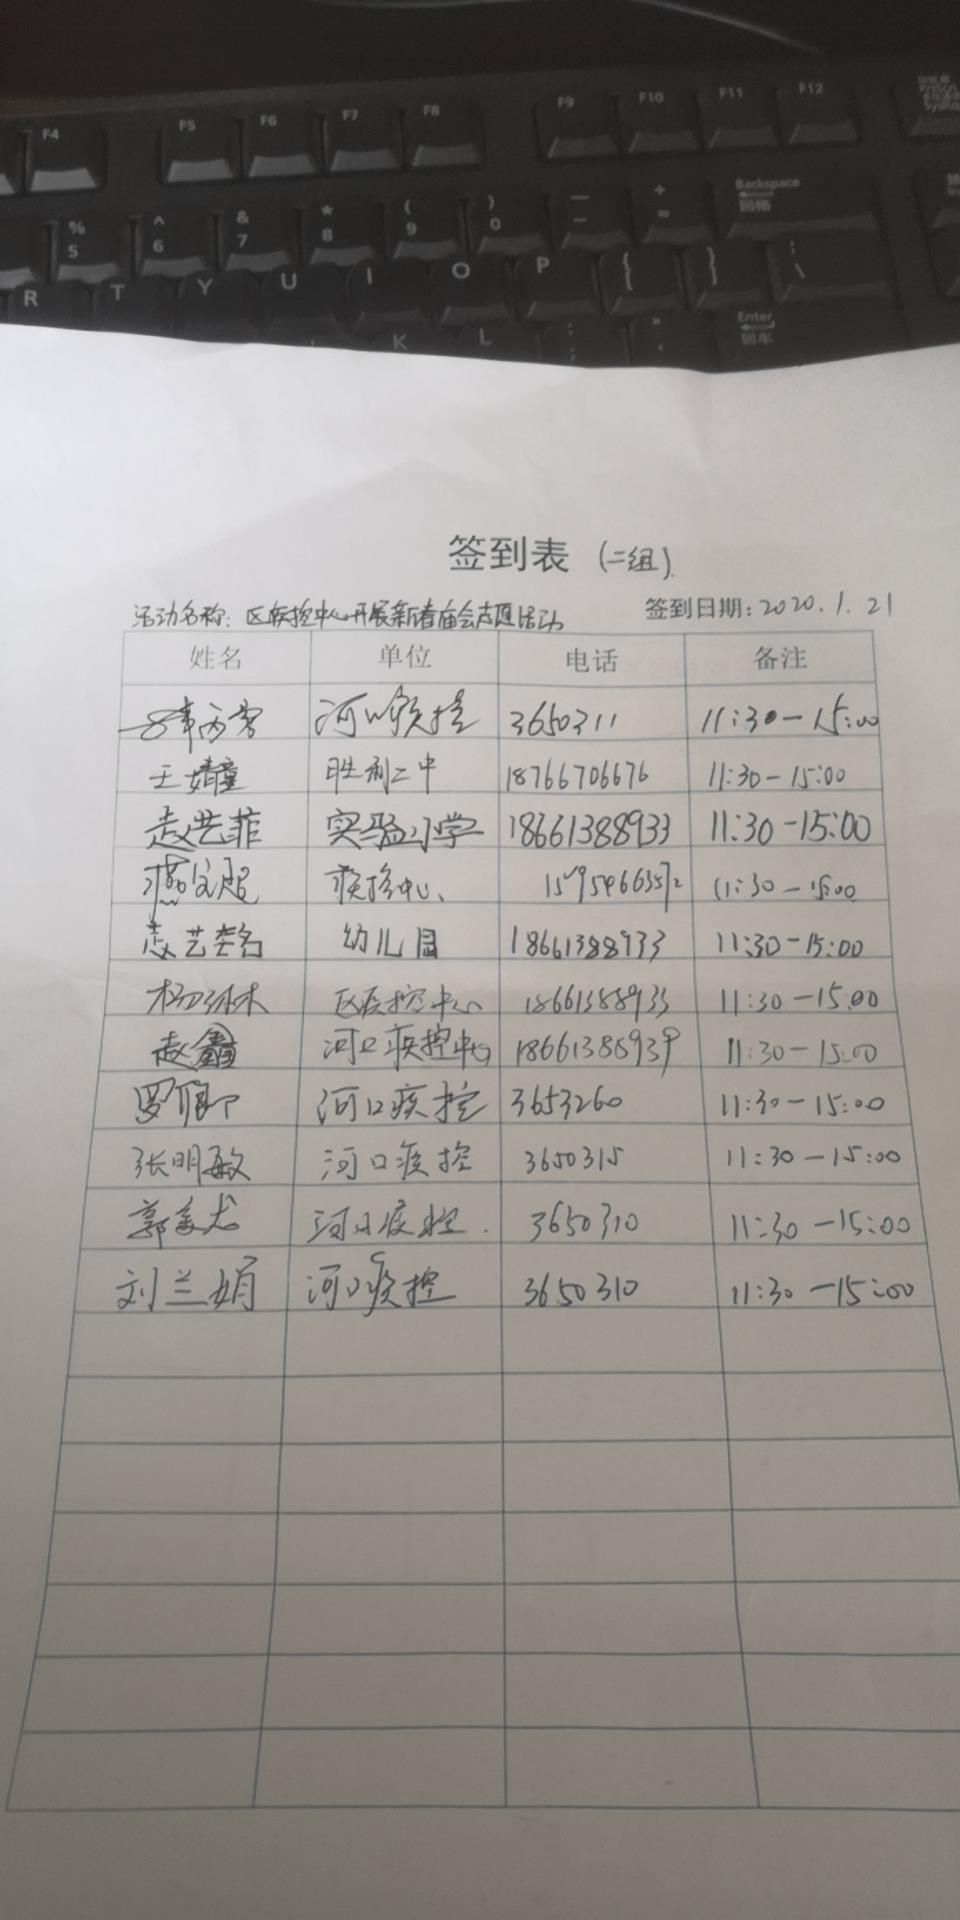 F4 F5 F6 F7 F8 F9 F10 F11 F12
% 5 ^ 6 & 7 * 8 ( 9 ) 0 — - + = Backspace 回格
R T Y U I O P { [ } ] \
K L : ; " ' Enter 回车
签到表 (二组).
活动名称: 区疾控中心开展新春庙会志愿活动 签到日期: 2020.1.21
姓名 单位 电话 备注
河口疾控 3650311 11:30-15:00
王婧童 胜利二中 18766706676 11:30-15:00
赵艺菲 实验小学 18661388933 11:30-15:00
疾控中心、 11:30-15:00
赵艺 幼儿园 18661388933 11:30-15:00
杨琳林 区疾控中心 18661388933 11:30-15:00
赵鑫 河口疾控中心 11:30-15:00
罗 河口疾控 3653260 11:30-15:00
张明敏 河口疾控 3650315 11:30-15:00
郭 河口疾控. 3650310 11:30-15:00
刘兰娟 河口疾控 3650310 11:30-15:00